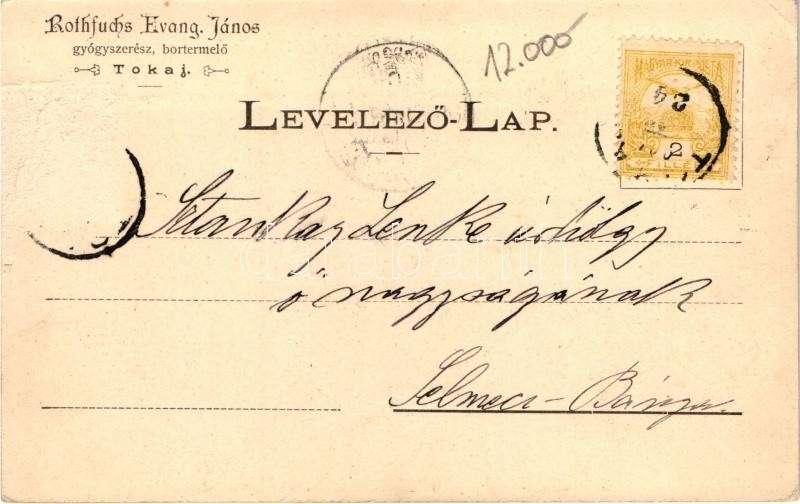 Rothfuchs Evang. János
gyógyszerész, bortermelő
Tokaj.
12.000
LEVELEZŐ-LAP.
MAGYAR KIR. POSTA
24
2
FILLÉR
Stankay Lenke úrhölgy
ő nagyságának
Selmecz-Bánya.
darabanth